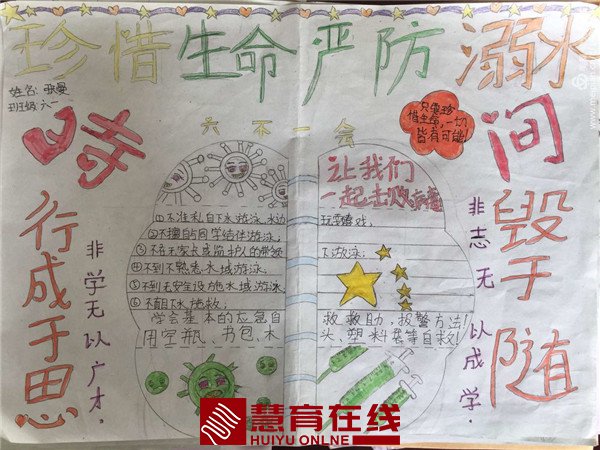 珍惜生命严防溺水
姓名：张曼
班级：六一
六不一会
只要珍
惜生命，一切
皆有可能！
时间
行成于思
毁于随
非学无以广才．
非志无以成学．
让我们
一起击败病毒
①不准私自下水游泳，水边玩耍嬉戏，
②不擅自与同学结伴游泳，
③不在无家长或监护人的带领下游泳；
④不到不熟悉水域游泳，
⑤不到无安全设施水域游泳，
⑥不盲目下水施救；
学会基本的应急自救救自助，报警方法！
用空瓶、书包、木头、塑料袋等自救！
慧育在线
HUIYU ONLINE